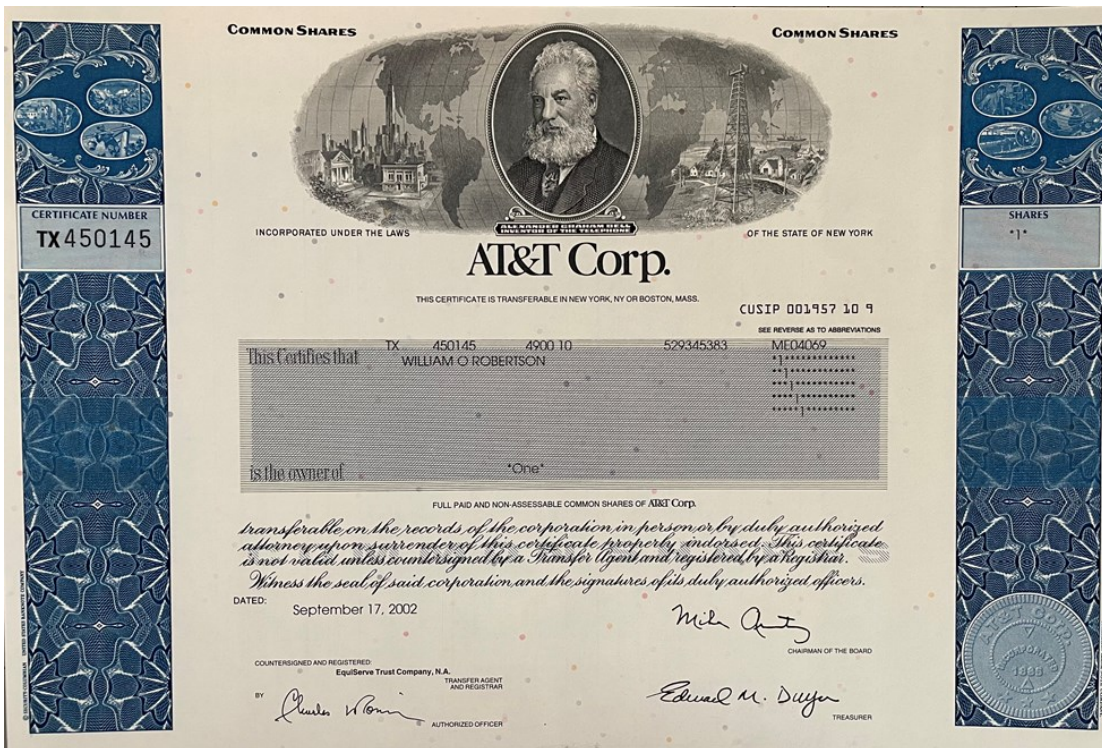 COMMON SHARES
COMMON SHARES
ALEXANDER GRAHAM BELL
INVENTOR OF THE TELEPHONE
CERTIFICATE NUMBER
TX450145
SHARES
*1*
INCORPORATED UNDER THE LAWS
OF THE STATE OF NEW YORK
AT&T Corp.
THIS CERTIFICATE IS TRANSFERABLE IN NEW YORK, NY OR BOSTON, MASS.
CUSIP 001957 10 9
SEE REVERSE AS TO ABBREVIATIONS
This Certifies that
TX 450145 4900 10 529345383 ME04069
WILLIAM O ROBERTSON
*1*************
**1************
***1***********
****1**********
*****1*********
is the owner of
*One*
FULL PAID AND NON-ASSESSABLE COMMON SHARES OF AT&T Corp.
transferable on the records of the corporation in person or by duly authorized
attorney upon surrender of this certificate properly indorsed. This certificate
is not valid unless countersigned by a Transfer Agent and registered by a Registrar.
Witness the seal of said corporation and the signatures of its duly authorized officers.
DATED:
September 17, 2002
CHAIRMAN OF THE BOARD
COUNTERSIGNED AND REGISTERED:
EquiServe Trust Company, N.A.
TRANSFER AGENT
AND REGISTRAR
BY
AUTHORIZED OFFICER
Edward M. Dwyer
TREASURER
AT&T CORP.
INCORPORATED
1885
© SECURITY-COLUMBIAN UNITED STATES BANKNOTE COMPANY